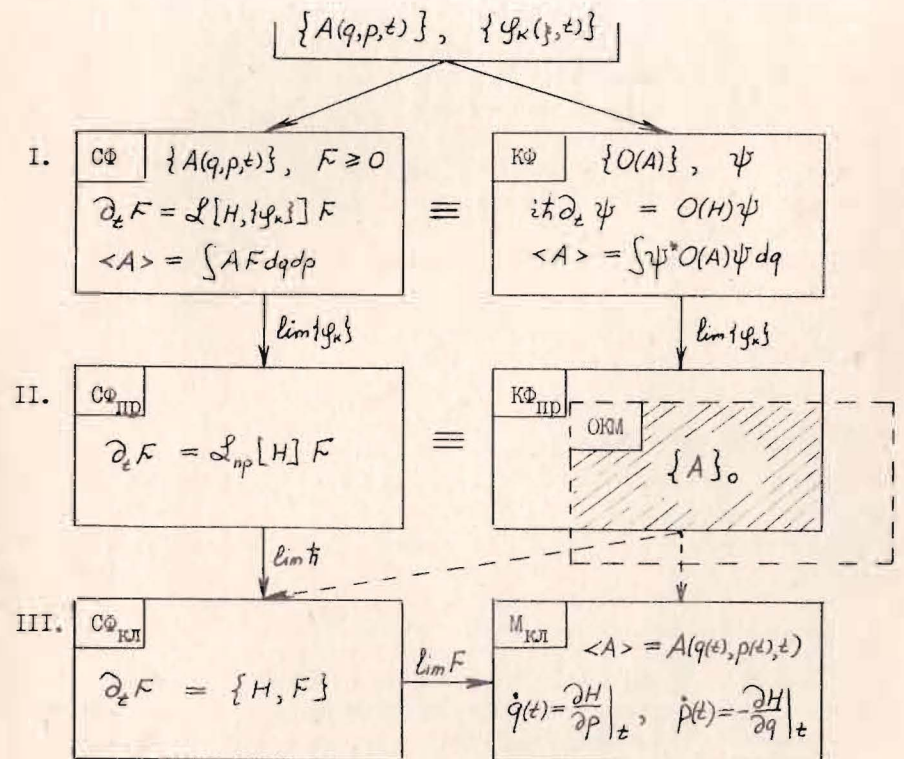 {A(q,p,t)}, {φₖ(ξ,t)}
I.
СФ {A(q,p,t)}, F ≥ 0
∂ₜF = ℒ[H,{φₖ}]F
<A> = ∫AFdqdp
≡
КФ {O(A)}, ψ
iħ∂ₜψ = O(H)ψ
<A> = ∫ψ*O(A)ψdq
lim{φₖ}
lim{φₖ}
II.
СФпр
∂ₜF = ℒпр[H]F
≡
КФпр
ОКМ
{A}₀
lim ħ
III.
СФкл
∂ₜF = {H,F}
lim F
Мкл
<A> = A(q(t),p(t),t)
q̇(t)=∂H/∂p|ₜ, ṗ(t)=-∂H/∂q|ₜ